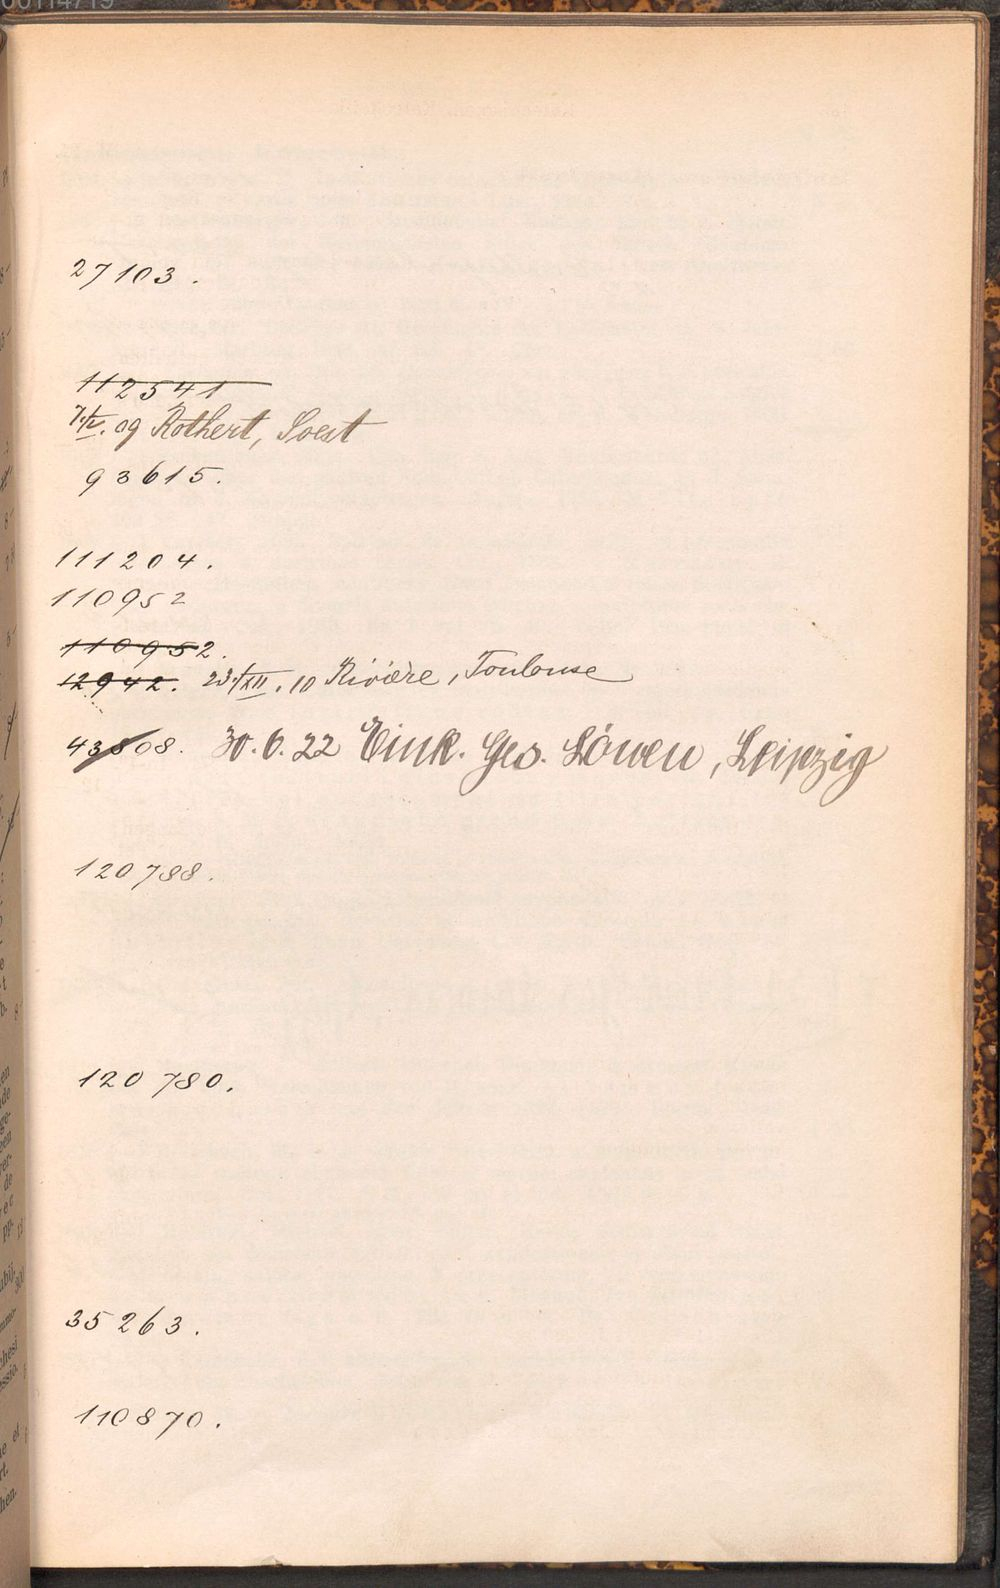 27103.
112541
7./V. 09 Rothert, Soest
93615.
111204.
110952
110952.
12942. 23/XII. 10 Rivière, Toulouse
43808. 30.6.22 Eink. Ges. Löwen, Leipzig
120788.
120 780.
35263.
110870.